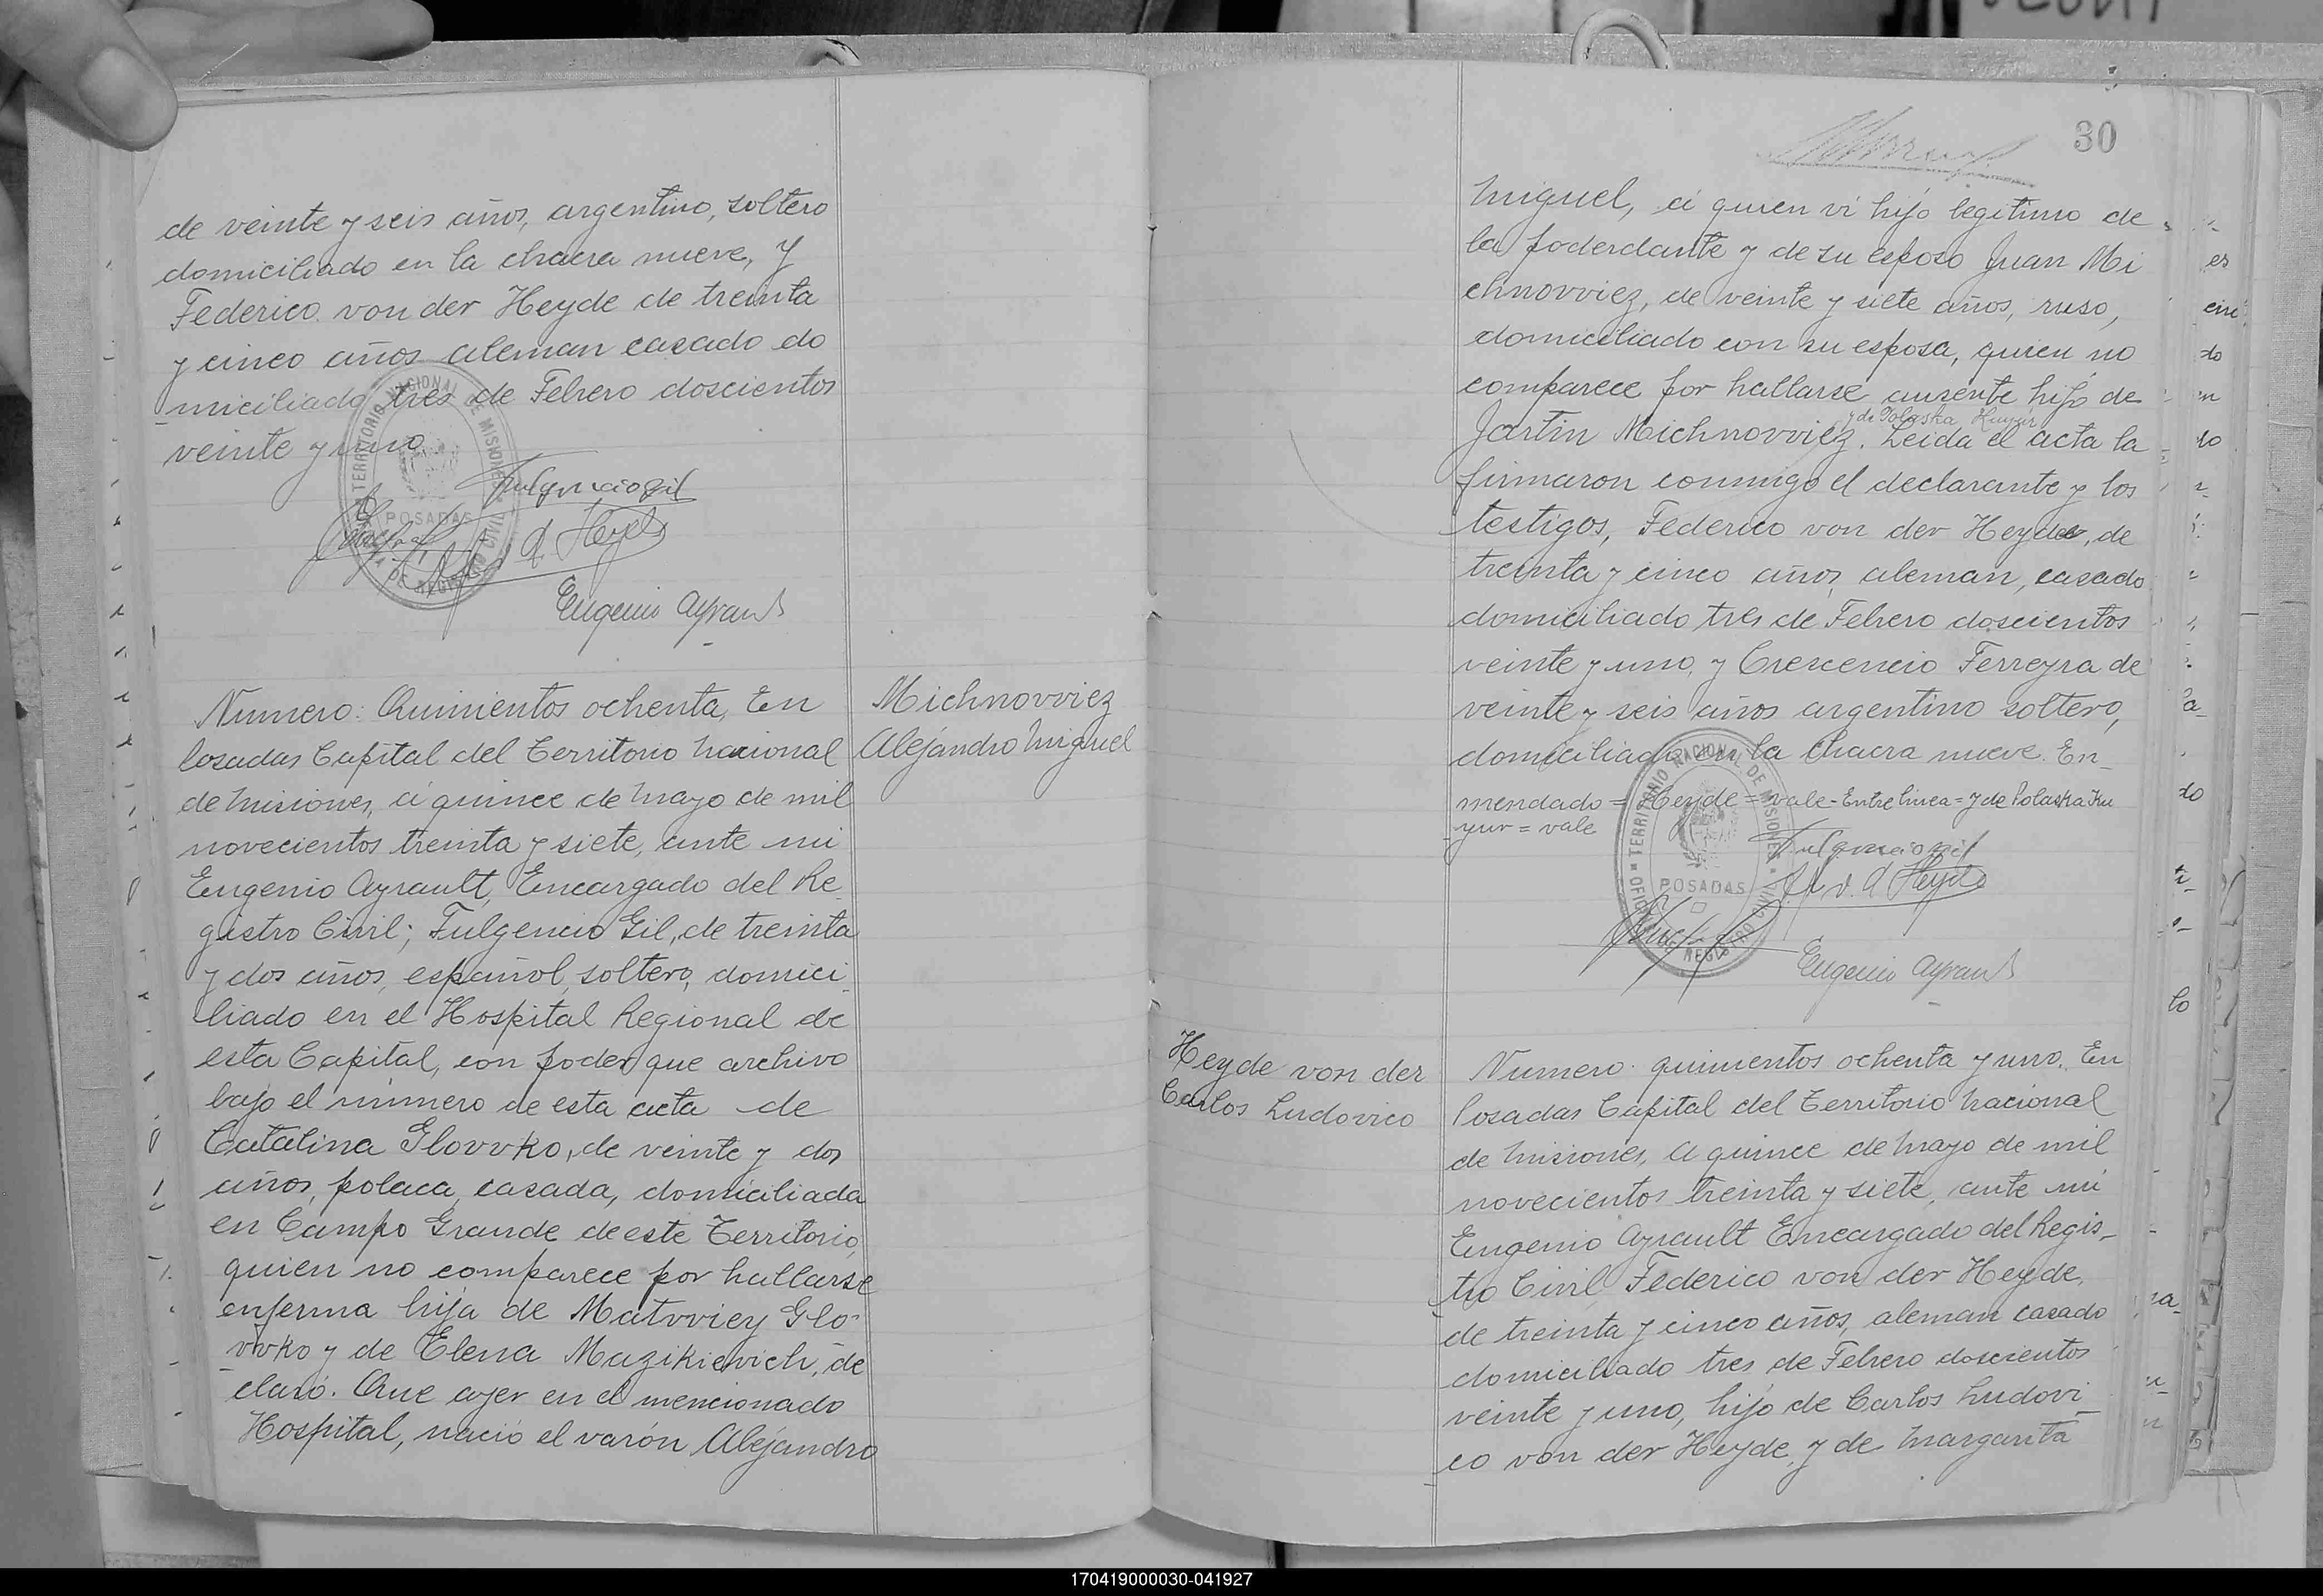 de veinte y seis años, argentino, soltero
domiciliado en la chacra nueve, y
Federico von der Heyde de treinta
y cinco años aleman casado do
miciliado tres de Febrero doscientos
veinte y uno.
TERRITORIO NACIONAL DE MISIONES
POSADAS
REGISTRO CIVIL
Fulgencio Gil
d Heyde
Eugenio Ayrault
Numero: Quinientos ochenta, En
Posadas Capital del Territorio Nacional
de Misiones, á quince de Mayo de mil
novecientos treinta y siete, ante mi
Eugenio Ayrault, Encargado del Re
gistro Civil; Fulgencio Gil, de treinta
y dos años, español, soltero, domici_
liado en el Hospital Regional de
esta Capital, con poder que archivo
bajo el número de esta acta de
Catalina Glovvko, de veinte y dos
años, polaca, casada, domiciliada
en Campo Grande de este Territorio,
quien no comparece por hallarse
enferma hija de Matvviey Glo-
vvko y de Elena Mazikievich, de
claró. Que ayer en el mencionado
Hospital, nació el varón Alejandro
Michnovviez
Alejandro Miguel
30
Miguel, á quien vi hijo legitimo de
la poderdante y de su esposo Juan Mi
chnovviez, de veinte y siete años, ruso,
domiciliado con su esposa, quien no
comparece por hallarse ausente hijo de
y de Polaska
Jartin Michnovviez. Leida el acta la
firmaron conmigo el declarante y los
testigos, Federico von der Heyde, de
treinta y cinco años, aleman, casado
domiciliado tres de Febrero doscientos
veinte y uno, y Crescencio Ferreyra de
veinte y seis años argentino soltero,
domiciliado en la chacra nueve. En_
mendado = Heyde = vale - Entre linea = y de Polaska Ku
yur = vale
TERRITORIO NACIONAL DE MISIONES
POSADAS
REGISTRO CIVIL
Fulgencio Gil
v. d Heyde
Eugenio Ayrault
Heyde von der
Carlos Ludovico
Numero: quinientos ochenta y uno. En
Posadas Capital del Territorio Nacional
de Misiones, a quince de Mayo de mil
novecientos treinta y siete, ante mi
Eugenio Ayrault Encargado del Regis_
tro Civil, Federico von der Heyde,
de treinta y cinco años, aleman casado
domiciliado tres de Febrero doscientos
veinte y uno, hijo de Carlos Ludovi_
co von der Heyde, y de Margarita
170419000030-041927